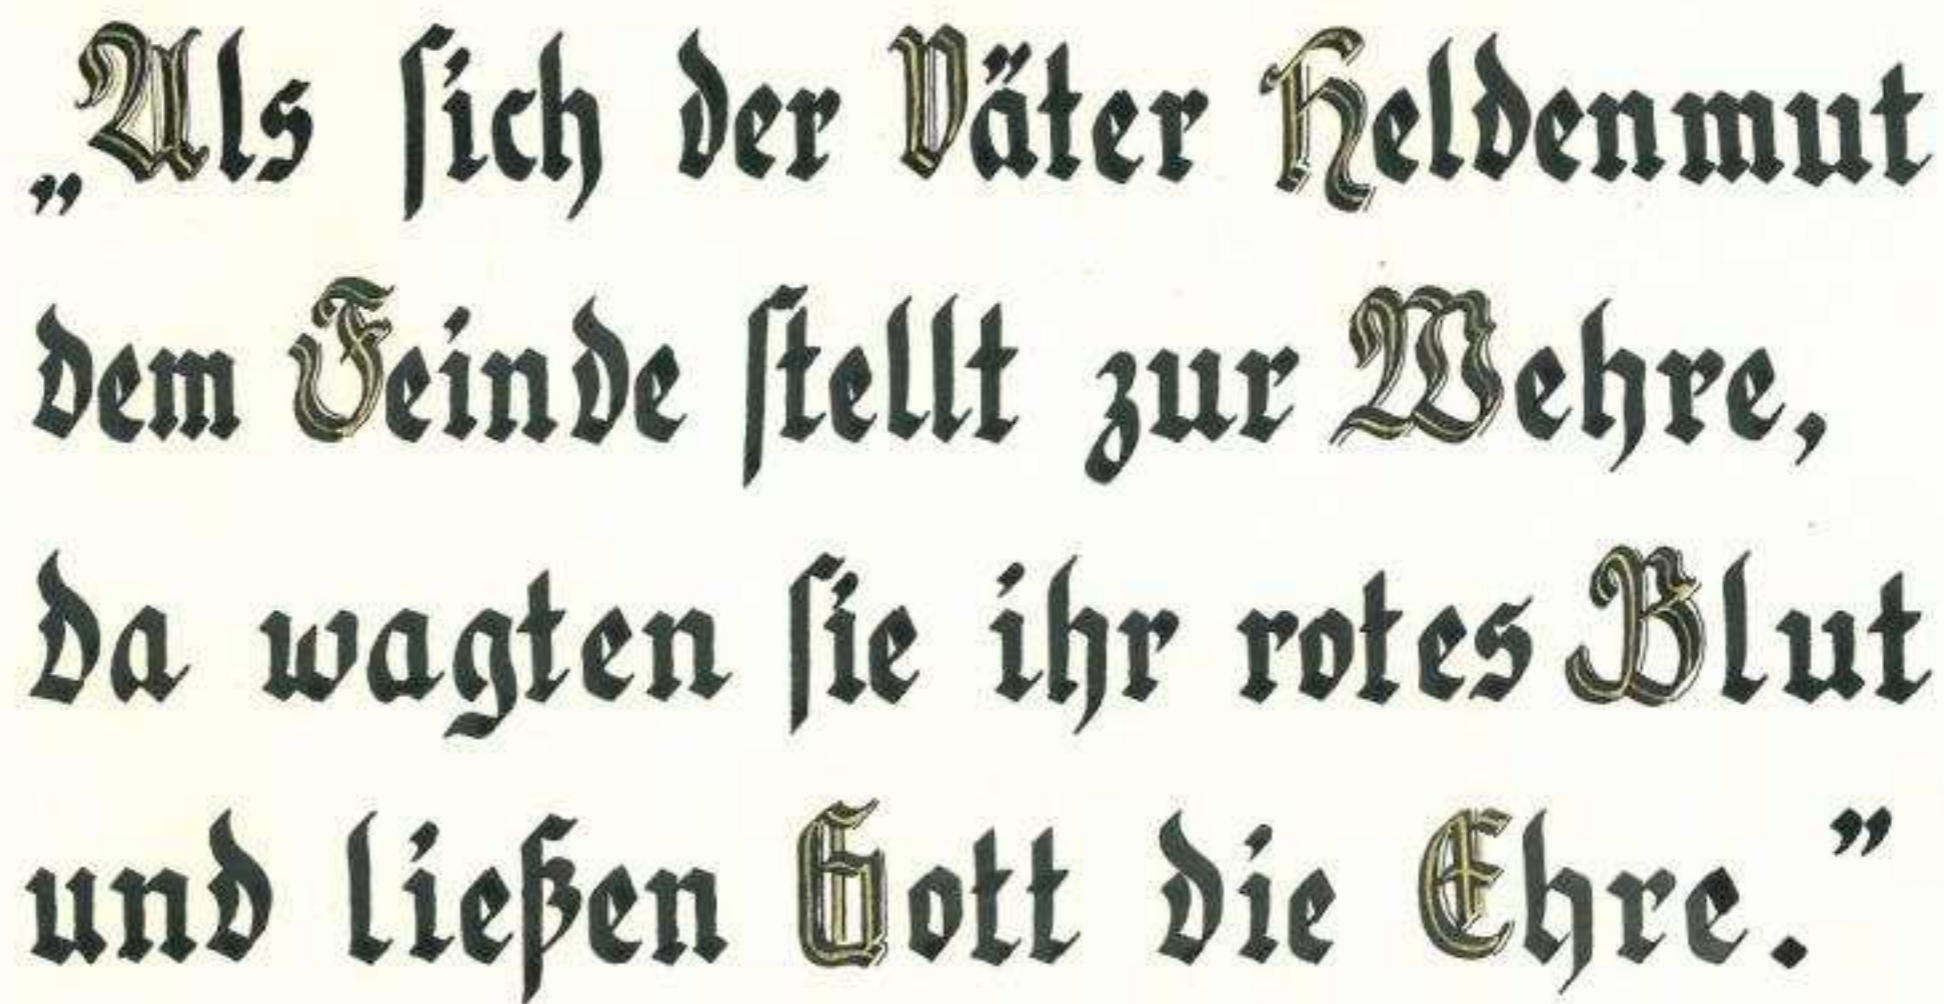 „Als ſich der Väter Heldenmut
dem Feinde ſtellt zur Wehre,
da wagten ſie ihr rotes Blut
und ließen Gott die Ehre.”